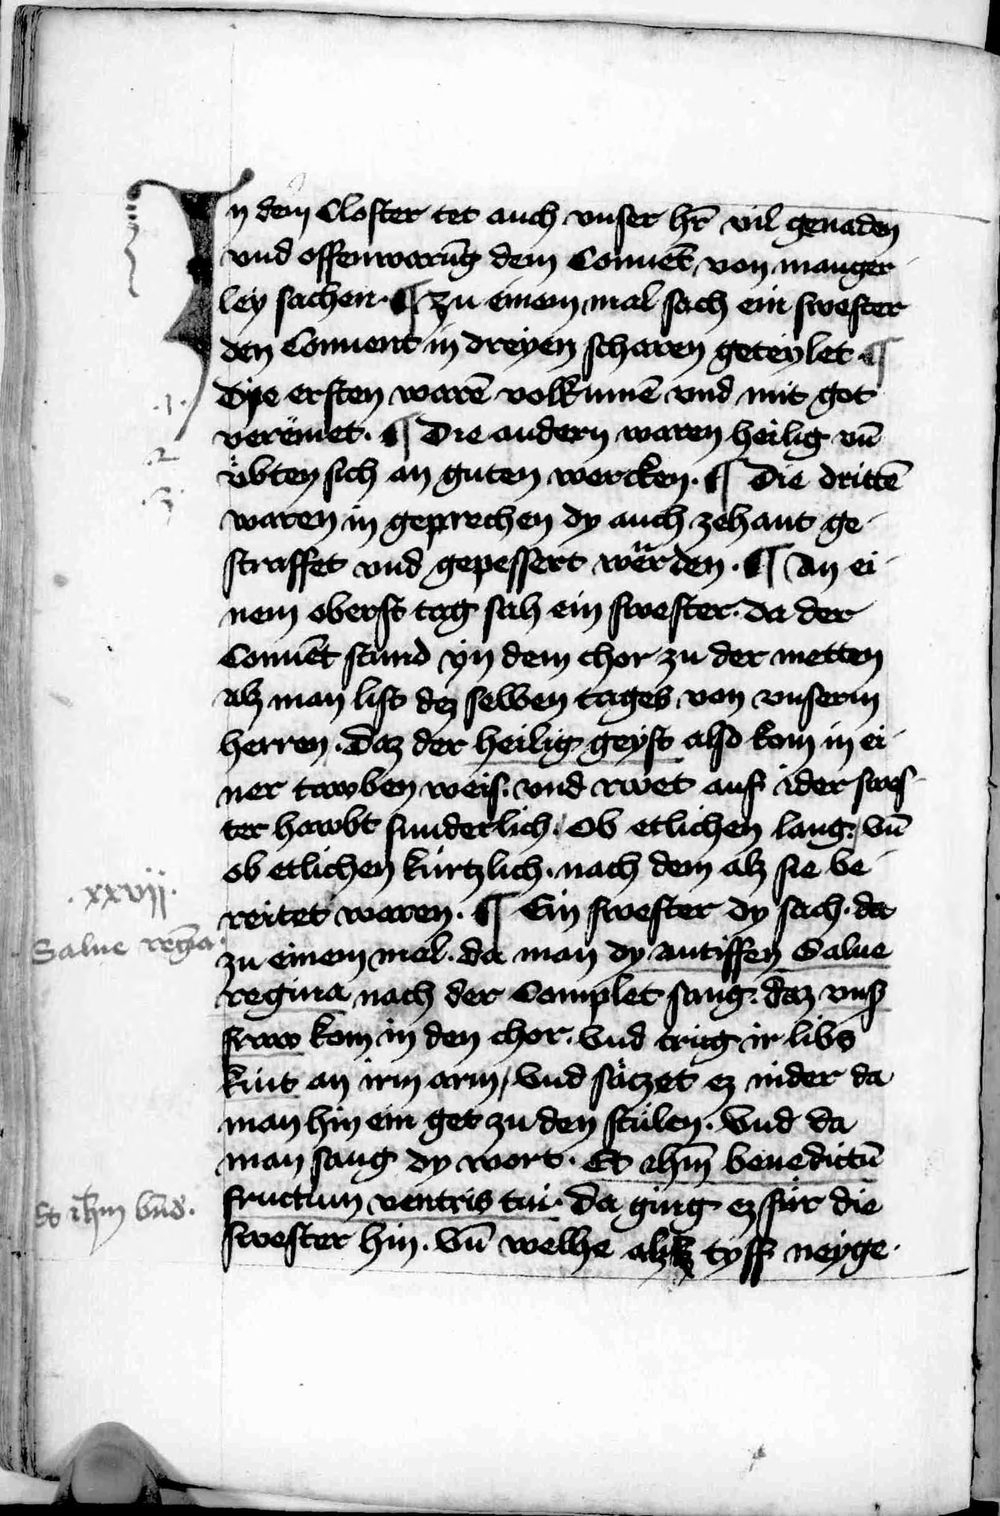 In dem Closter tet auch vnser hr̄ vil genaden
vnd offenwarūg dem Conuēt von manger
ley sachen · ¶ zu einem mal sach ein swester
den Conuent in dreyen scharen geteylet · ¶
· 1 ·
Dye ersten warē volkumē vnd mit got
vereinet · ¶ Die andern waren heilig vn̄
· 2
vbten sich an guten wercken · ¶ Die drittē
· 3 ·
waren in geprechen dy auch zehant ge
straffet vnd gepessert wurden · ¶ An ei
nem oberst tag sah ein swester · da der
Conuēt stund yn dem chor zu der metten
alz man list dez selben tages von vnserm
herren · Daz der heilig geyst also kom in ei
ner tawben weis · vnd rwet auf ider swes
ter hawbt sunderlich · Ob etlichen lang · vn̄
ob etlichen kürtzlich · nach dem alz sie be
· xxvij ·
reitet waren · ¶ Ein swester dy sach · da
Salue regīa ·
zu einem mol · da man dy antiffen Salue
regina nach der Complet sang · daz vnß
fraw kom in den chor · Vnd trug ir libs
kint an irm arm / Vnd sätzet ez nider da
man hin ein get zu den stülen · Vnd da
man sang dy wort · Et ihm̄ benedictū
Et ihm bn̄d ·
fructum ventris tui · Da ging ez für die
swester hin · Vn̄ welhe alz tyff neyge